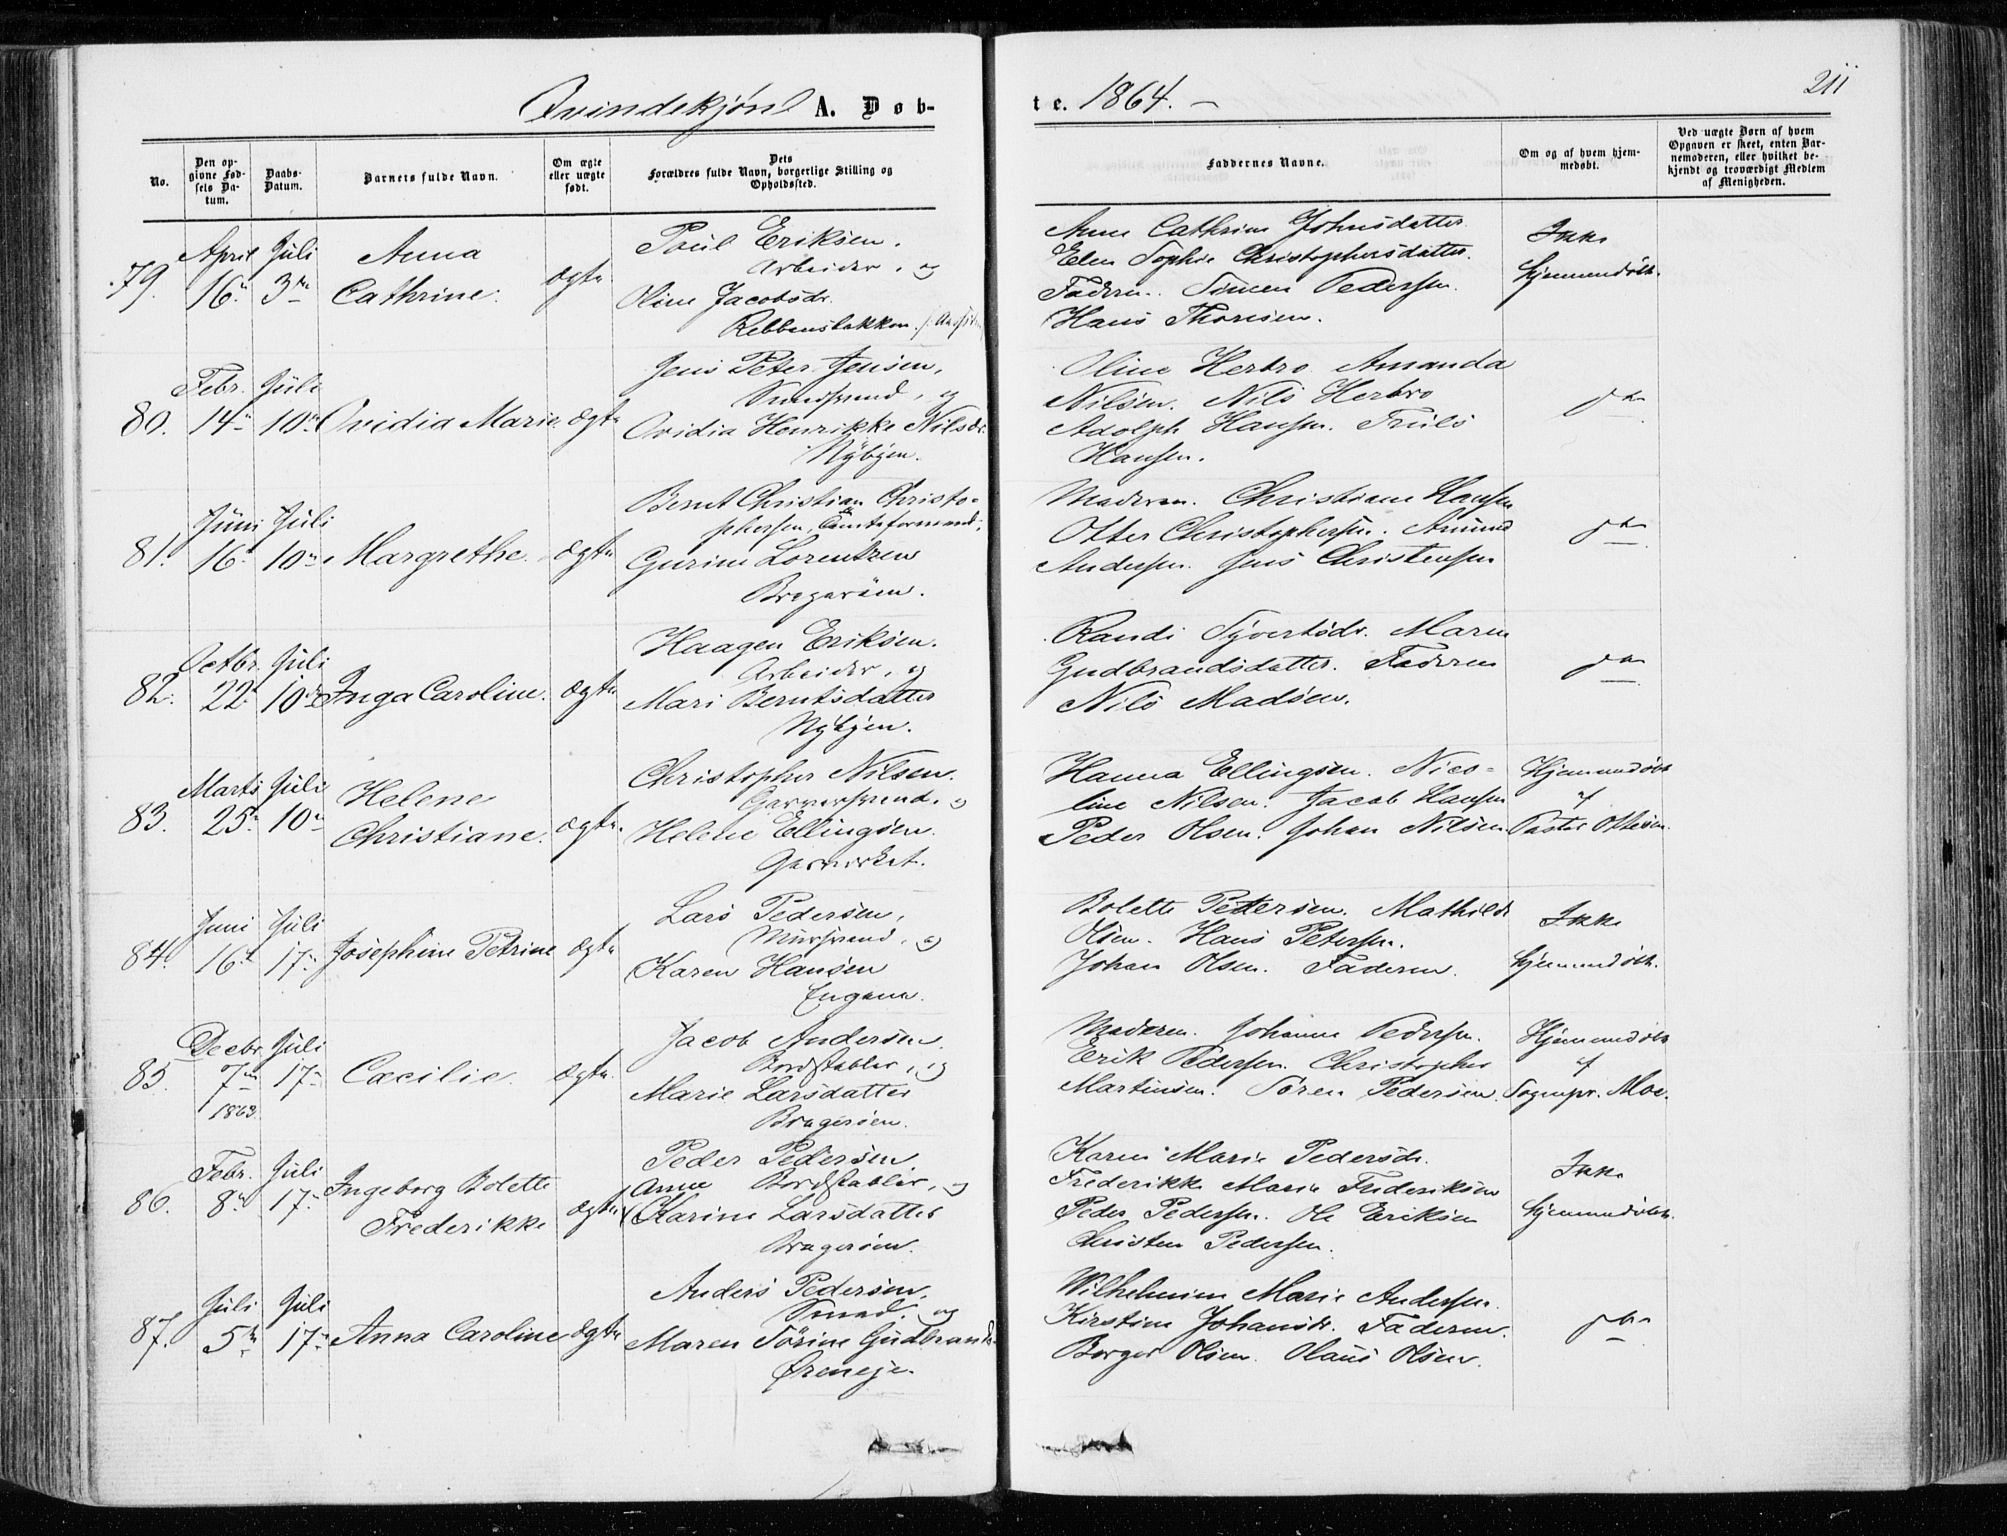 Qvindekjøn A. Døb-
te. 1864. –
211
No.
Den op-
givne Fød-
sels Da-
tum.
Daabs-
Datum.
Barnets fulde Navn.
Om ægte
eller uægte
født.
Dets
Forældres fulde Navn, borgerlige Stilling og
Opholdssted.
Faddernes Navne.
Om og af hvem hjem-
medøbt.
Ved uægte Børn af hvem
Opgaven er skeet, enten Bar-
nemoderen, eller hvilket be-
kjendt og troværdigt Medlem
af Menigheden.
79.
April
16
Juli
3die
Anna
Cathrine.
ægte
Paul Eriksen.
Arbeider, og
Oline Jacobsdr.
Anne Cathrine Johnsdatter
Elen Sophie Christophersdatter.
Faderen. Simen Pedersen.
Hans Thoresen.
Ikke
hjemmedøbt.
80.
Febr.
14
Juli
10
Ovidia Marie
ægte
Jens Peter Jensen,
Smedsvend, og
Ovidia Henrikke Nilsdr.
Nybyen.
Oline Herbro Amanda
Nilsen. Nils Herbro
Adolph Hansen. Truls
Hansen.
do
81.
Juni
16
Juli
10
Margrethe.
ægte
Bernt Christian Christo-
phersen, Tomteformand,
Gurine Lorentzen
Bragerøen.
Moderen. Christiane Hansen
Otter Christophersen. Amund
Andersen. Jens Christensen
do
82.
Octbr.
22
Juli
10
Inga Caroline.
ægte
Haagen Eriksen.
Arbeider, og
Mari Berntsdatter
Nybyen.
Randi Syvertsdr. Maren
Gudbrandsdatter. Faderen
Nils Madsen.
do
83.
Marts
25
Juli
10
Helene
Christiane.
ægte.
Christopher Nilsen.
Garversvend. og
Helene Ellingsen.
Gamserket.
Hanna Ellingsen. Nico-
line Nilsen. Jacob Hansen
Peder Olsen. Johan Nilsen.
Hjemmedøbt
af
Pastor Ottesen.
84.
Juni
16
Juli
17
Josephine Petrine
ægte
Lars Pedersen,
Mursvend, og
Karen Hansen
Engene.
Bolette Pettersen. Mathilde
Olsen. Hans Petersen.
Johan Olsen. Faderen.
Ikke
hjemmedøbt.
85.
Decbr
7
1863.
Juli
17
Cæcilie.
ægte.
Jacob Andersen.
Bordstabler, og
Marie Larsdatter
Bragerøen.
Moderen. Johanne Pedersen.
Erik Pedersen. Christopher
Martinsen. Søren Pedersen.
Hjemmedøbt
af
Sognepr. Moe.
86.
Febr.
8
Juli
17
Ingeborg Bolette
Frederikke
ægte
Peder Pedersen
Anne Bordstabler, og
Karine Larsdatter
Bragerøen.
Karen Marie Pedersdr.
Frederikke Marie Frederiksen
Peder Pedersen. Ole Eriksen
Christen Pedersen.
Ikke
hjemmedøbt.
87.
Juli
5
Juli
17
Anna Caroline
ægte
Anders Pedersen,
Smed. og
Maren Sørine Gudbrands-
Øreneje.
Wilhelmine Marie Andersen.
Kirstine Johansdr. Faderen.
Borger Olsen. Olaus Olsen.
do